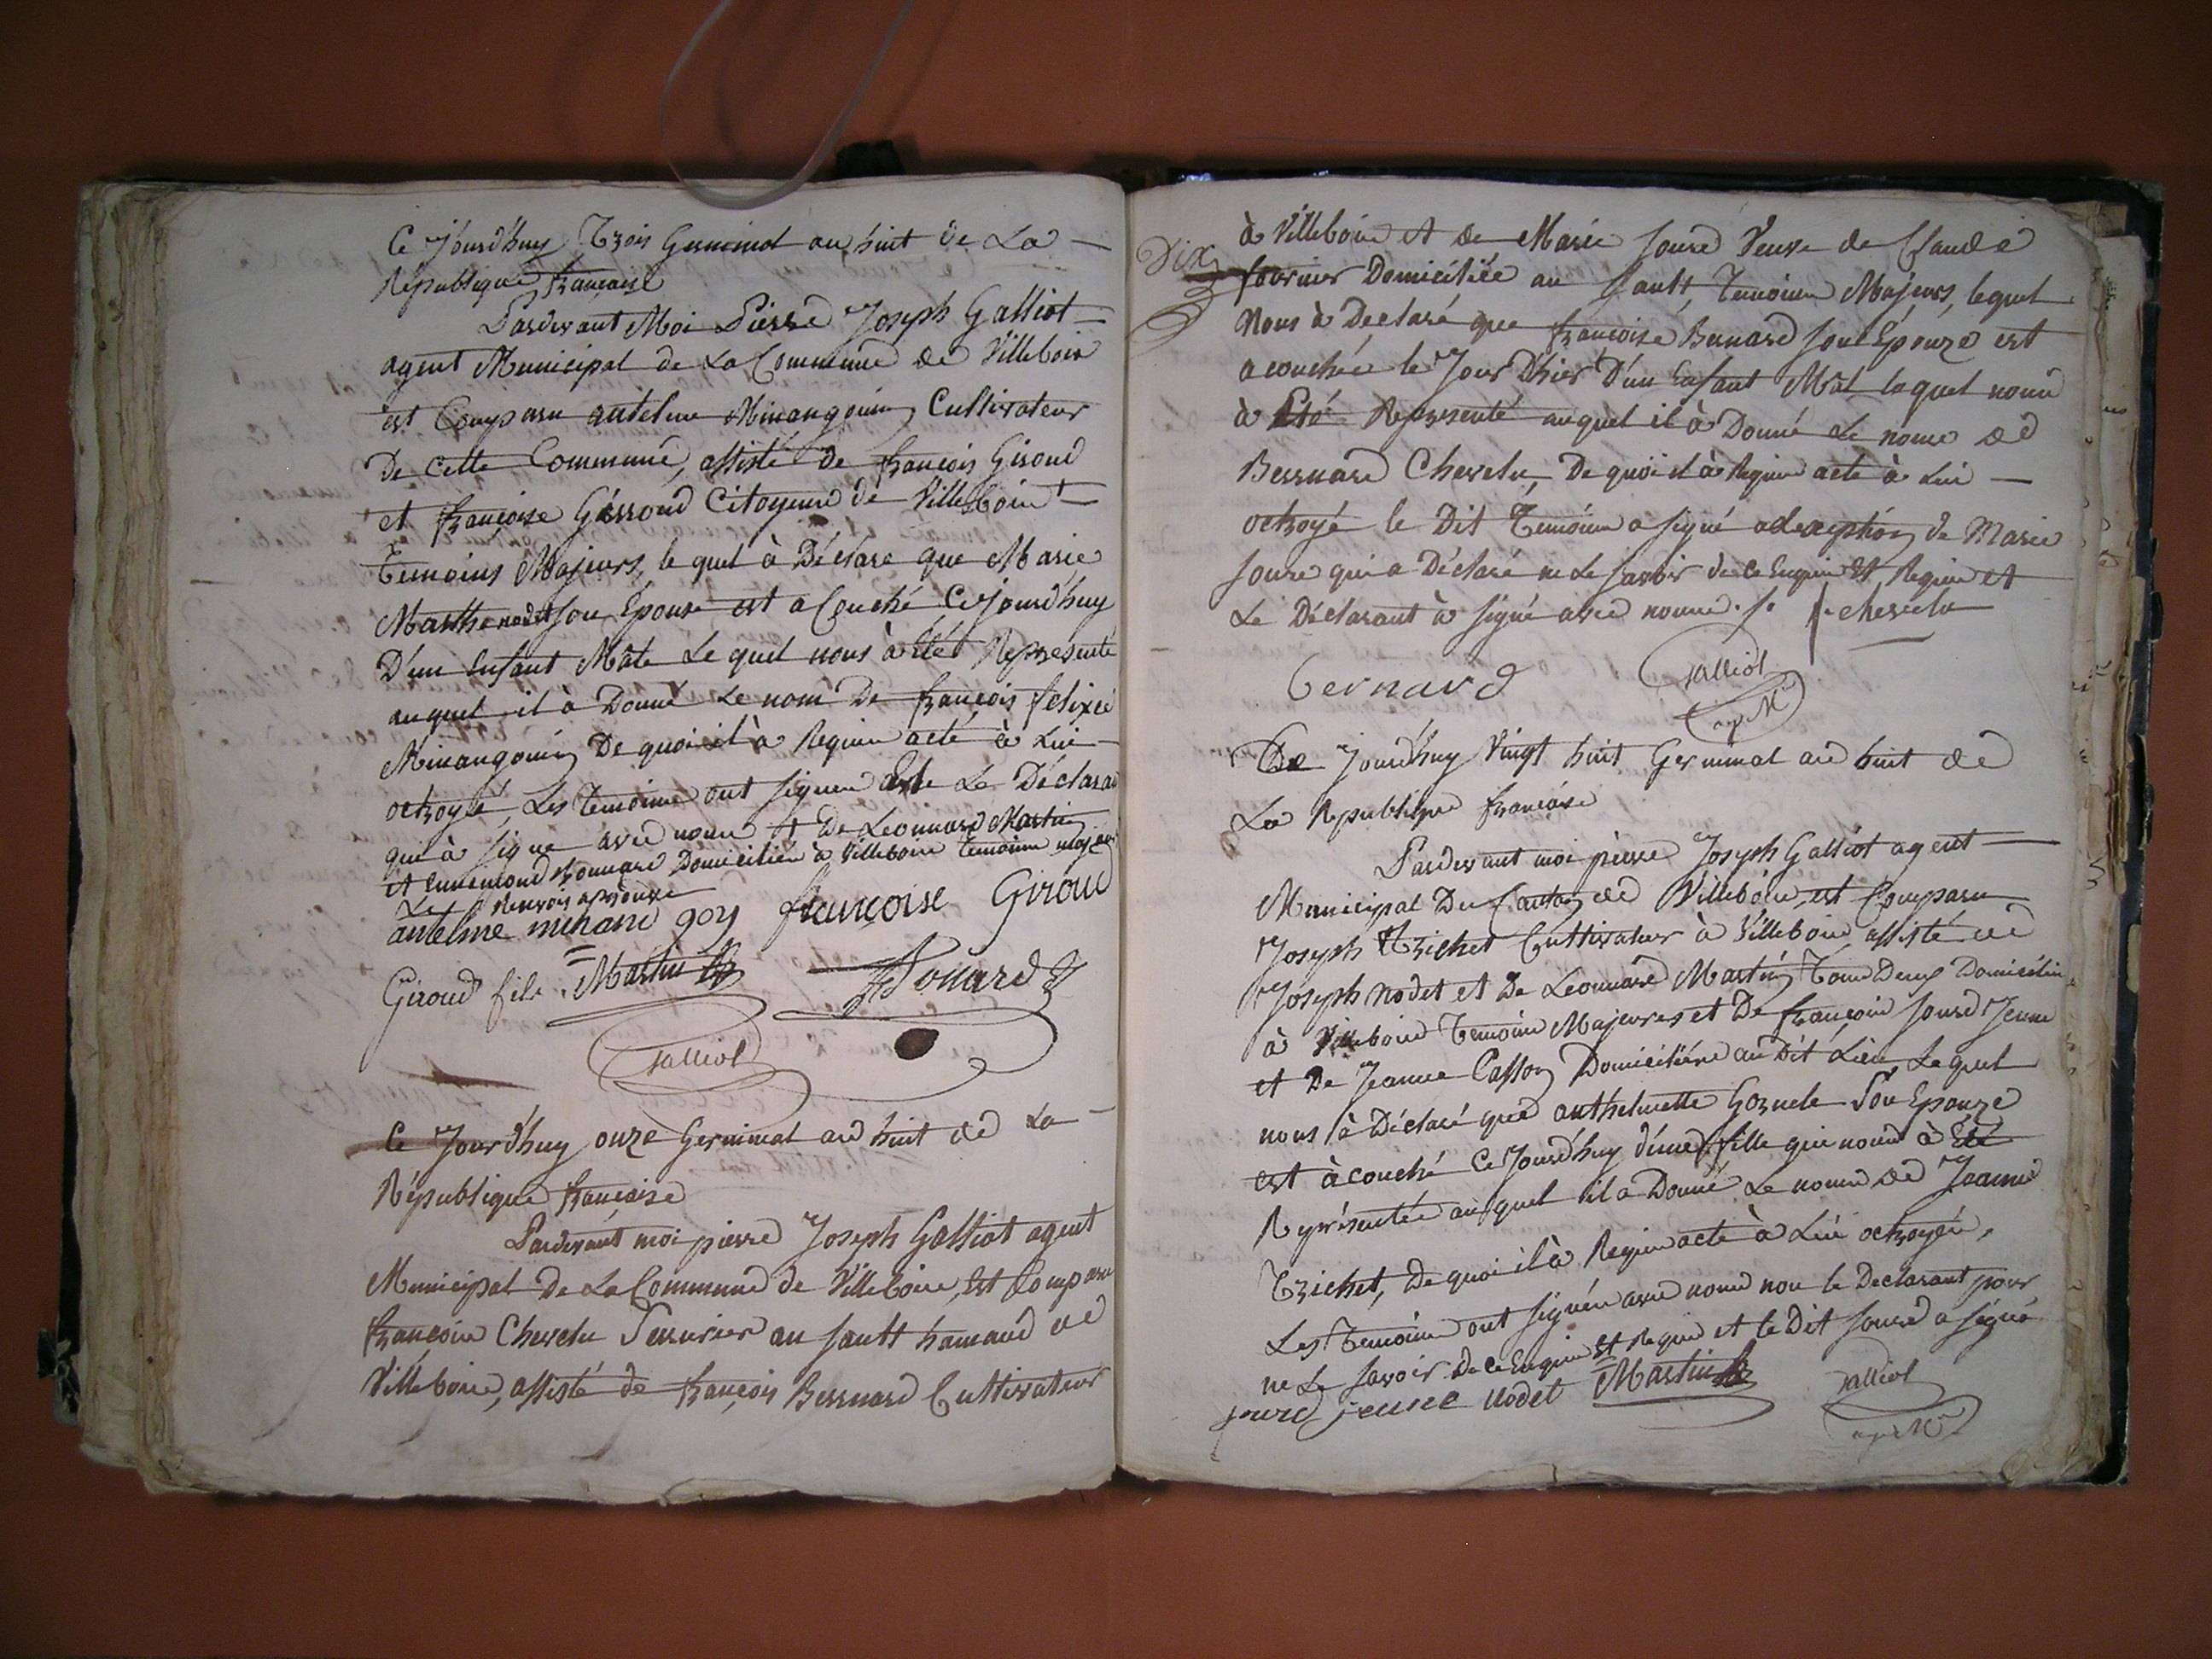 Ce Jourdhuy Trois Germinal an huit de La
Republique française
Pardevant Moi Pierre Joseph Galliot
agent Municipal de La Commune de Villeboix
est Comparu antelme Minangouin Cultivateur
De cette Commune, assisté de françois Giroud
et françoise Girroud Citoyens de Villeboix
Temoins Majeurs, le quel à Déclare que Marie
Marthe nodet son Epouse est a Couché Cejourdhuy
D'un Enfant Mâle Le quel nous à Eté Représenté
auquel il à Donné Le nom De françois felixe
Minangouin De quoi il à Requi acte à Lui
octroyé, Les Temoins ont signer Le Déclarant
qui à signe avec nous et De Leonnard Martin
et Ennemond Domicilier à Villeboix Temoins majeurs
Le Renvois aprouvé
antelme minan goy françoise Giroud
Giroud fils Martin
Galliot
Ce Jourd'huy onze Germinal an huit de La
République française
Pardevant moi pierre Joseph Galliot agent
Municipal De La Commune de Villeboix, est Comparu
françois Chevelu Serrurier au Sault hamaud de
Villeboix, assisté de françois Bernard Cultivateur
Dix
à Villeboix et de Marie Joure Veuve de Claude
fournier Domiciliée au Sault, Temoins Majeurs, lequel
Nous à Declaré que françoise Bunard son Epouze est
acouchée le Jour D'hier D'un Enfant Mâl laquel nous
à Eté Représenté auquel il à Donné Le nome de
Bernard Chevelu, De quoi il à Requis acte à Lui
octroyé le Dit Temoins a signé adexeption de Marie
Joure qui a Déclaré ne Le savoir de ce Enquis Et Requis et
Le Déclarant à signé avec nous. f. chevelu
Bernard Galliot
agt Mal
Ce Jourdhuy Vingt huit Germinal an huit de
La Republique françoise
Pardevant moi pierre Joseph Galliot agent
Municipal Du Canton de Villeboix, est Comparu
Joseph Trichet Cultivateur à Villeboix assisté de
Joseph Nodet et De Leonnard Martin Tous Deux Domicilier
à Villeboix Temoins Majeures et De françois Joure Jeune
et De Jeanne Casson Domiciliére au Dit Lieu, Lequel
nous à Déclaré que anthelmette Gornele Son Epouze
est àcouché Ce Jourdhuy d'une fille qui nous à Eté
Représentée auquel il a Donné Le nome de Jeanne
Trichet, De quoi il à Requis acte à Lui octroyér,
Les Temoins ont signér avec nous non le Declarant pour
ne Le savoir De ce Enquis Et Requis et le Dit Joure a signé
joure jeune Nodet Martin Galliot
agt Mal